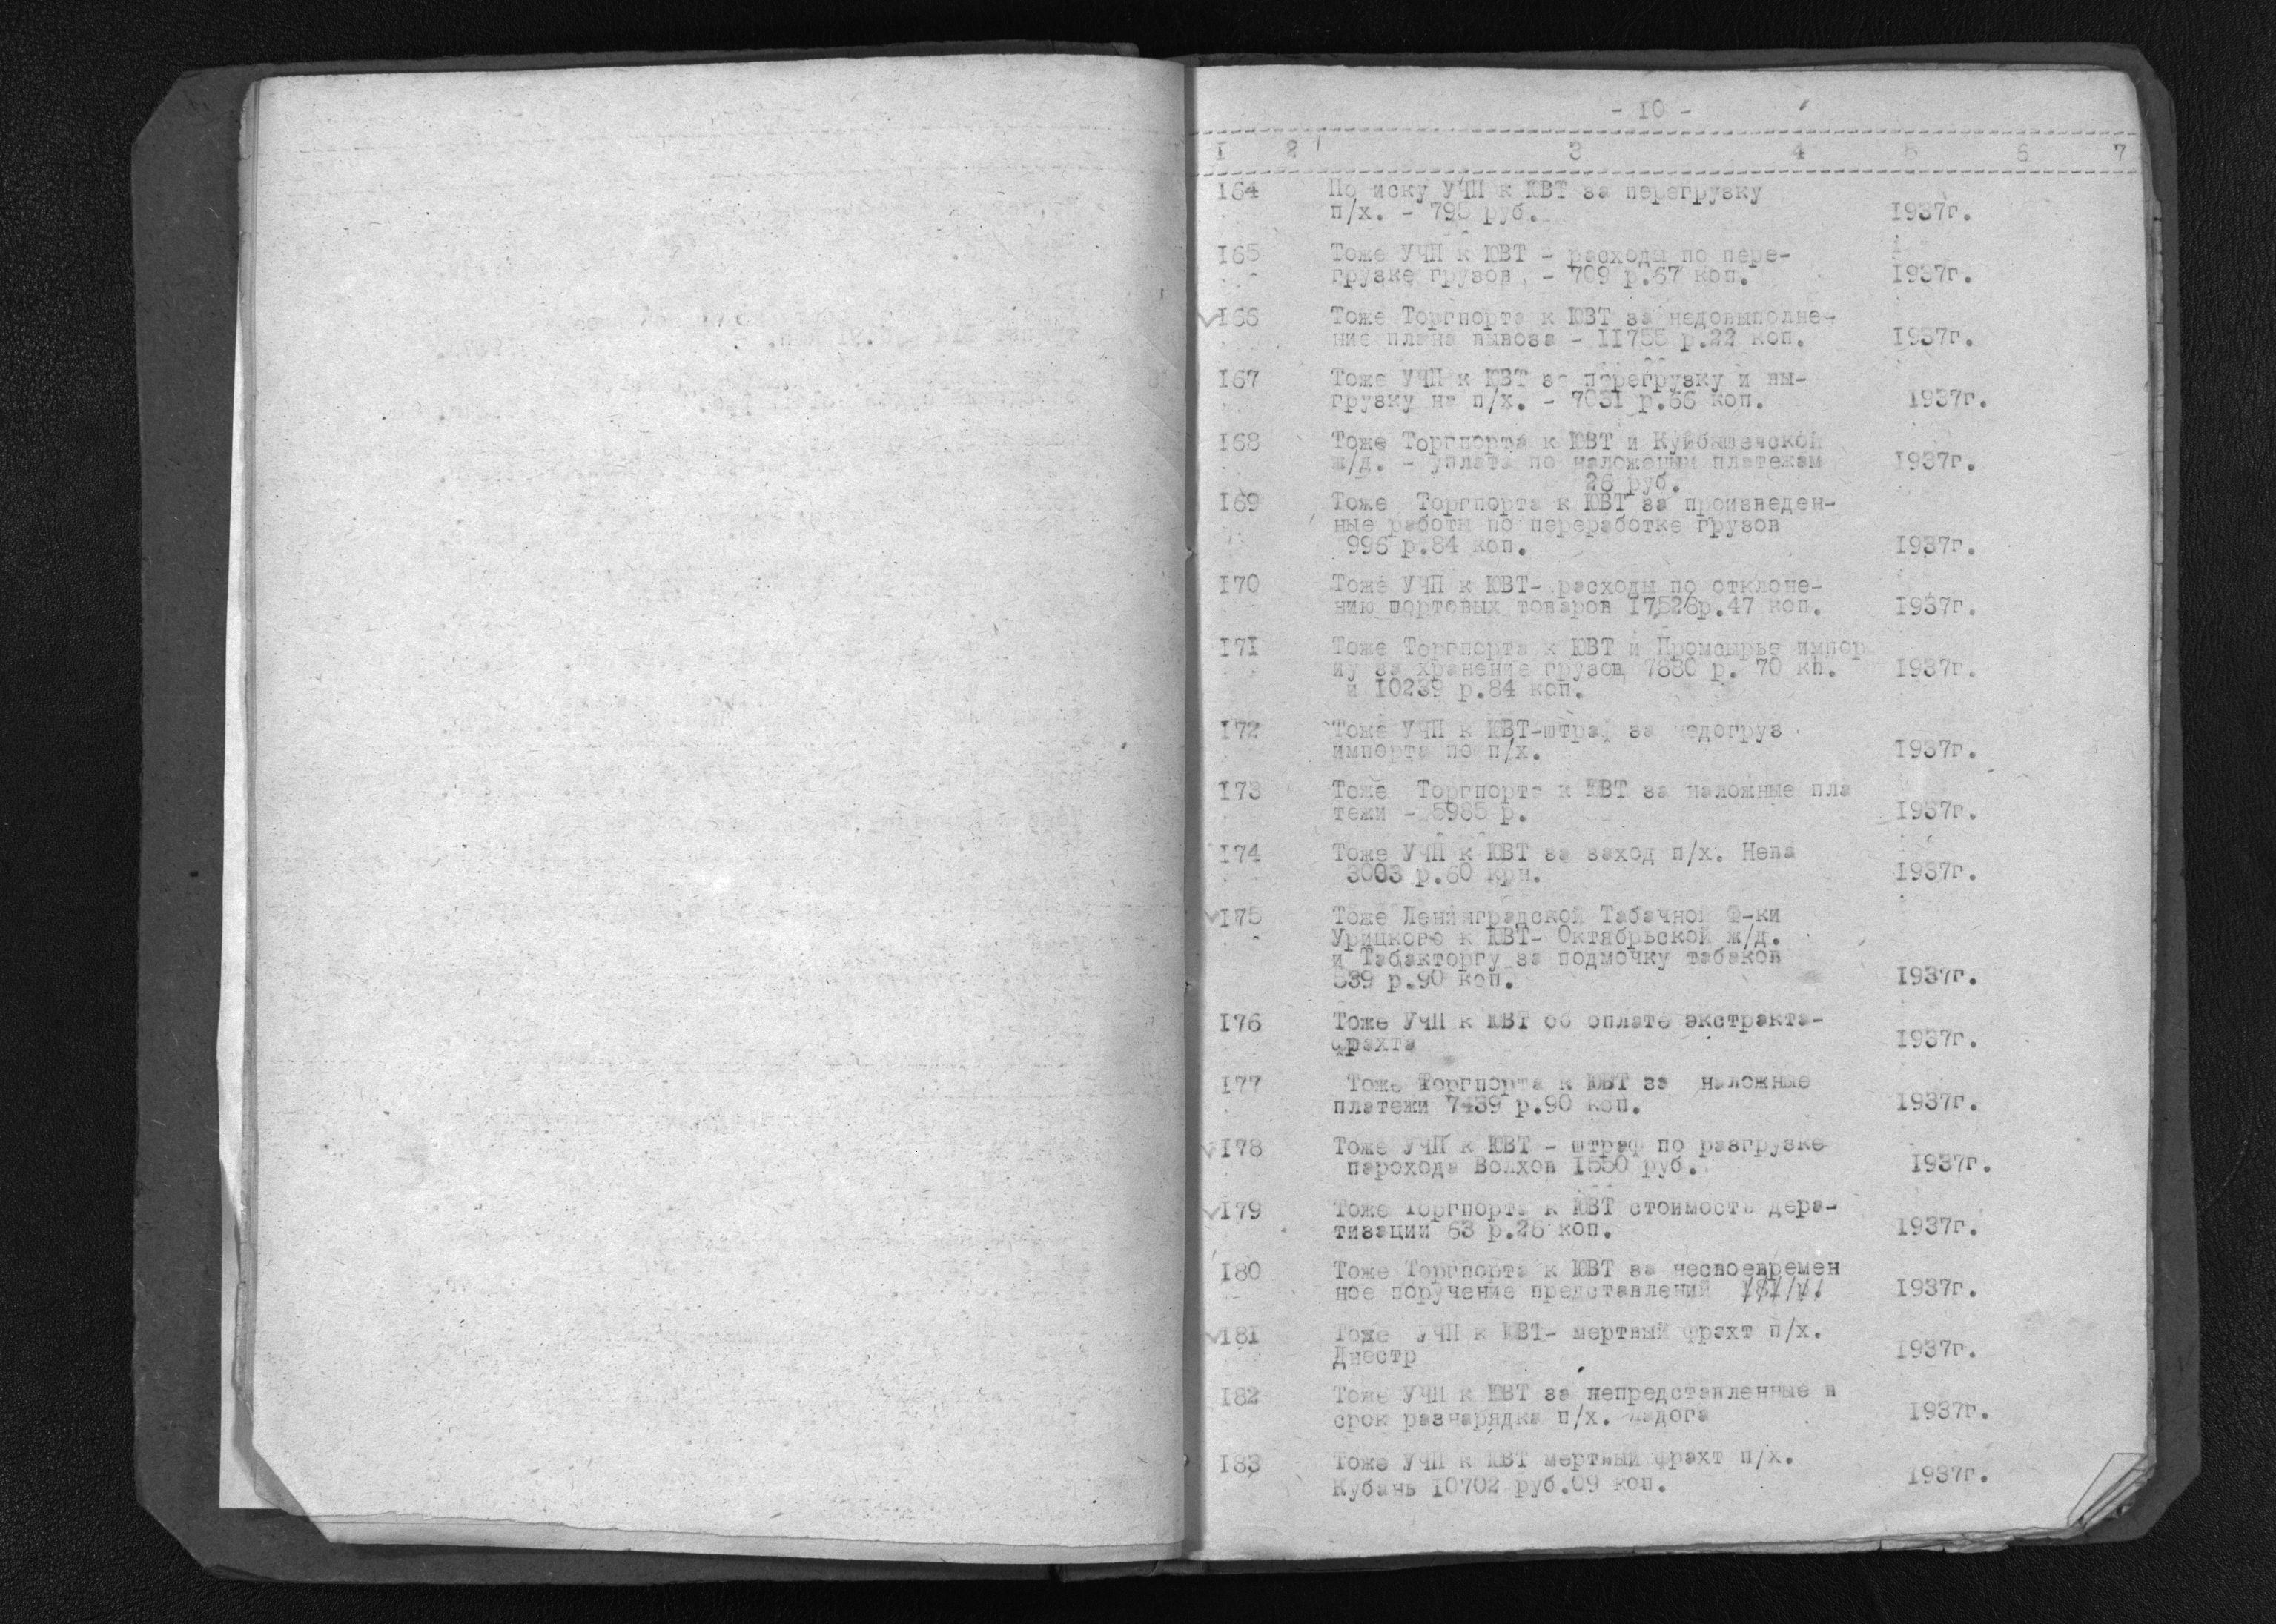 - 10 -
1 2 3 4 5 6 7
164 По иску УЧП к ЮВТ за перегрузку
п/х. - 795 руб. 1937г.
165 Тоже УЧП к ЮВТ - расходы по пере-
грузке грузов - 709 р.67 коп. 1937г.
166 Тоже Торгпорта к ЮВТ за недовыполне-
ние плана вывоза - 11755 р.22 коп. 1937г.
167 Тоже УЧП к ЮВТ за перегрузку и вы-
грузку на п/х. - 7031 р.66 коп. 1937г.
168 Тоже Торгпорта к ЮВТ и Куйбышевской
ж/д. - уплата по наложеным платежам 1937г.
26 руб.
169 Тоже Торгпорта к ЮВТ за произведен-
ные работы по переработке грузов
996 р.84 коп. 1937г.
170 Тоже УЧП к ЮВТ- расходы по отклоне-
нию портовых товаров 17526р.47 коп. 1937г.
171 Тоже Торгпорта к ЮВТ и Промсырье импор
ту за хранение грузов 7880 р. 70 кп. 1937г.
и 10239 р.84 коп.
172 Тоже УЧП к ЮВТ-штраф за недогруз
импорта по п/х. 1937г.
173 Тоже Торгпорта к ЮВТ за наложные пла
тежи - 5985 р. 1937г.
174 Тоже УЧП к ЮВТ за заход п/х. Нева
3003 р.60 крн. 1937г.
175 Тоже Ленинградской Табачной Ф-ки
Урицкого к ЮВТ- Октябрьской ж/д.
и Табакторгу за подмочку табаков
539 р.90 коп. 1937г.
176 Тоже УЧП к ЮВТ об оплате экстракта-
фрахта 1937г.
177 Тоже Торгпорта к ЮВТ за наложные
платежи 7439 р.90 коп. 1937г.
178 Тоже УЧП к ЮВТ - штраф по разгрузке
парохода Волхов 1550 руб. 1937г.
179 Тоже Торгпорта к ЮВТ стоимость дера-
тизации 63 р.26 коп. 1937г.
180 Тоже Торгпорта к ЮВТ за несвоевремен
ное поручение представлений 1937г.
181 Тоже УЧП к ЮВТ- мертвый фрахт п/х.
Днестр 1937г.
182 Тоже УЧП к ЮВТ за непредставленные в
срок разнарядка п/х. Ладога 1937г.
183 Тоже УЧП к ЮВТ мертвый фрахт п/х.
Кубань 10702 руб.09 коп. 1937г.